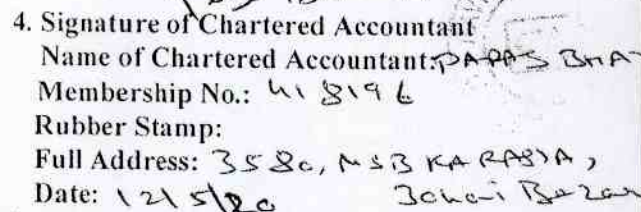 4. Signature of Chartered Accountant
Name of Chartered Accountant: PARAS BHA
Membership No.: 418196
Rubber Stamp:
Full Address: 3580, MSB KA RASTA,
Date: 12/5/20 Johari Bazar